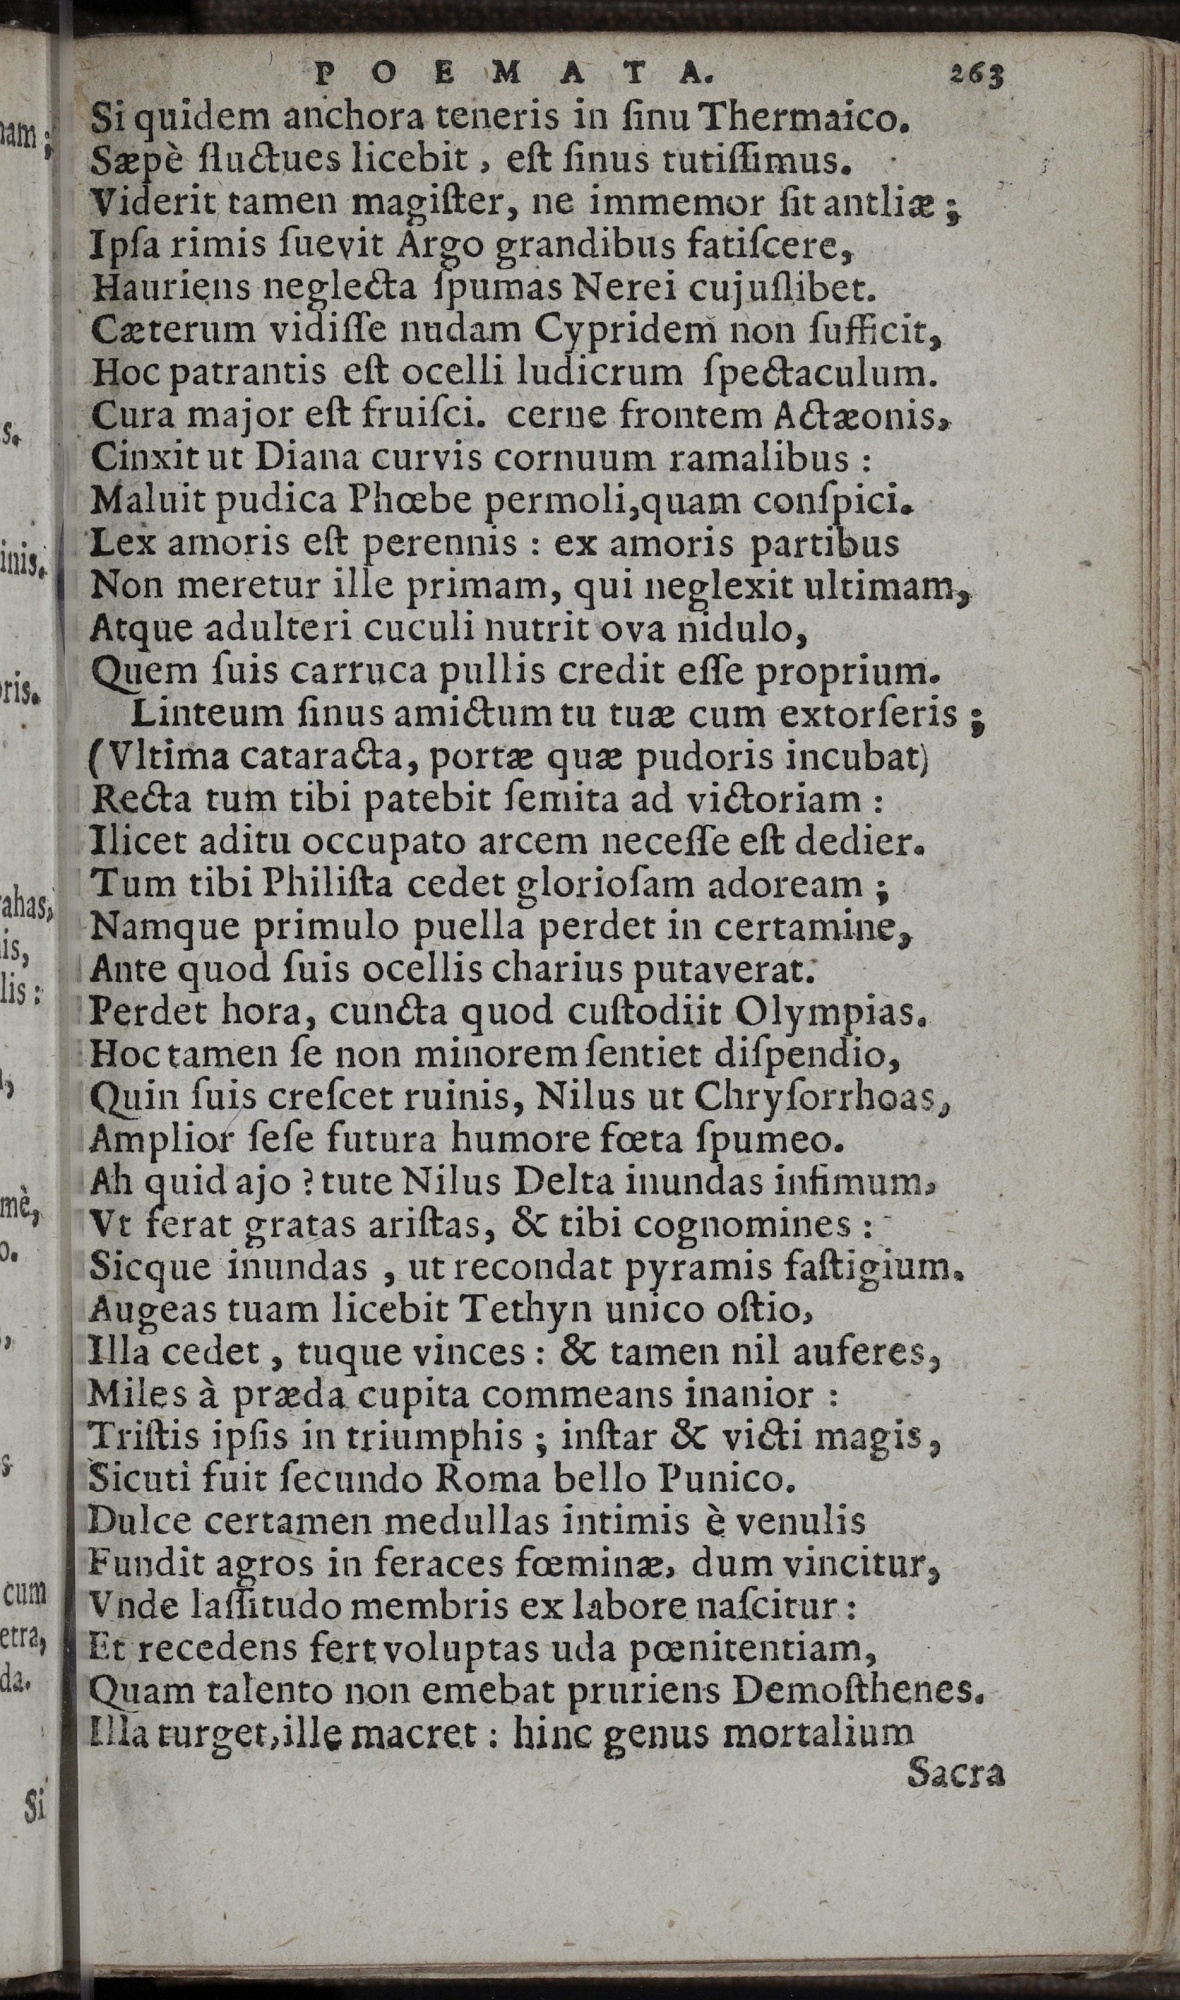 POEMATA. 263
Si quidem anchora teneris in ſinu Thermaico.
Sæpè fluctues licebit, eſt ſinus tutiſſimus.
Viderit tamen magiſter, ne immemor ſit antliæ;
Ipſa rimis ſuevit Argo grandibus fatiſcere,
Hauriens neglecta ſpumas Nerei cujuſlibet.
Cæterum vidiſſe nudam Cypridem non ſufficit,
Hoc patrantis eſt ocelli ludicrum ſpectaculum.
Cura major eſt fruiſci. cerne frontem Actæonis,
Cinxit ut Diana curvis cornuum ramalibus:
Maluit pudica Phœbe permoli, quam conſpici.
Lex amoris eſt perennis: ex amoris partibus
Non meretur ille primam, qui neglexit ultimam,
Atque adulteri cuculi nutrit ova nidulo,
Quem ſuis carruca pullis credit eſſe proprium.
Linteum ſinus amictum tu tuæ cum extorſeris;
(Vltima cataracta, portæ quæ pudoris incubat)
Recta tum tibi patebit ſemita ad victoriam:
Ilicet aditu occupato arcem neceſſe eſt dedier.
Tum tibi Philiſta cedet glorioſam adoream;
Namque primulo puella perdet in certamine,
Ante quod ſuis ocellis charius putaverat.
Perdet hora, cuncta quod cuſtodiit Olympias.
Hoc tamen ſe non minorem ſentiet diſpendio,
Quin ſuis creſcet ruinis, Nilus ut Chryſorrhoas,
Amplior ſeſe futura humore fœta ſpumeo.
Ah quid ajo? tute Nilus Delta inundas infimum,
Vt ferat gratas ariſtas, & tibi cognomines:
Sicque inundas, ut recondat pyramis faſtigium.
Augeas tuam licebit Tethyn unico oſtio,
Illa cedet, tuque vinces: & tamen nil auferes,
Miles à præda cupita commeans inanior:
Triſtis ipſis in triumphis; inſtar & victi magis,
Sicuti fuit ſecundo Roma bello Punico.
Dulce certamen medullas intimis è venulis
Fundit agros in feraces fœminæ, dum vincitur,
Vnde laſſitudo membris ex labore naſcitur:
Et recedens fert voluptas uda pœnitentiam,
Quam talento non emebat pruriens Demoſthenes.
Illa turget, ille macret: hinc genus mortalium
Sacra